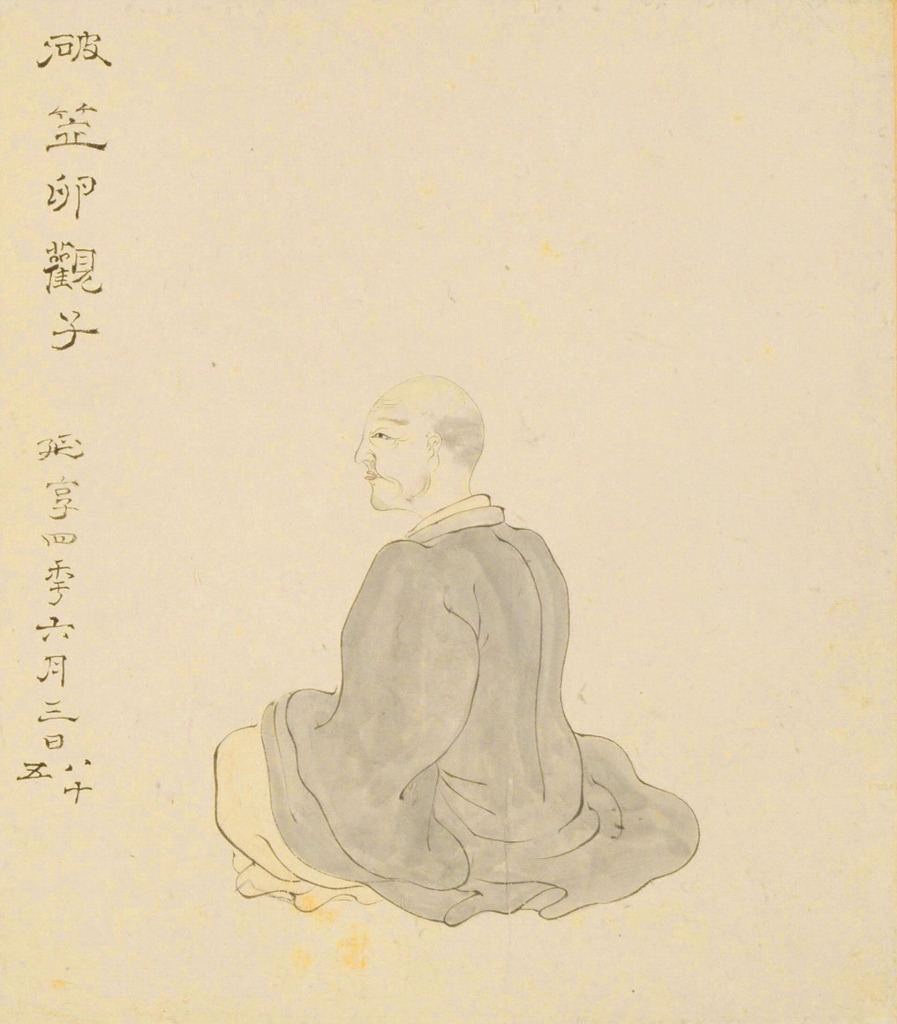 破笠卯觀子
延享四季六月三日
八十
五